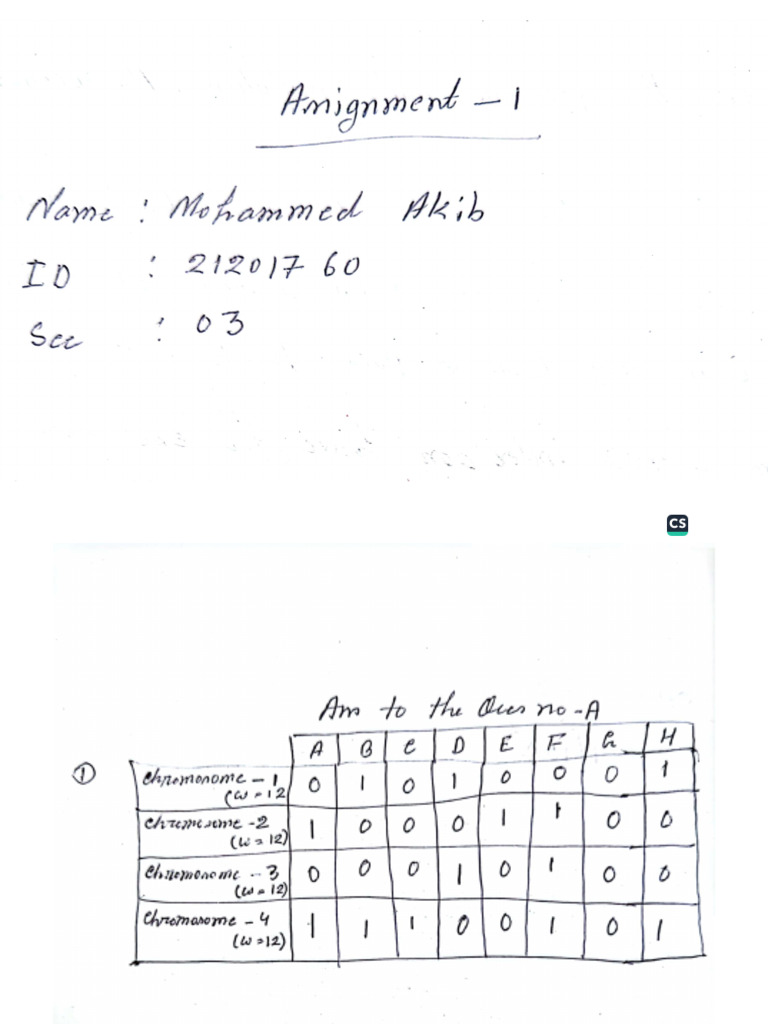 Assignment - 1
Name : Mohammed Akib
ID : 212017 60
Sec : 03
CS
Ans to the Ques no - A
A B C D E F G H
① Chromosome - 1 (w = 12 0 1 0 1 0 0 0 1
Chromosome - 2 (w = 12) 1 0 0 0 1 1 0 0
Chromosome - 3 (w = 12) 0 0 0 1 0 1 0 0
Chromosome - 4 (w = 12) 1 1 1 0 0 1 0 1